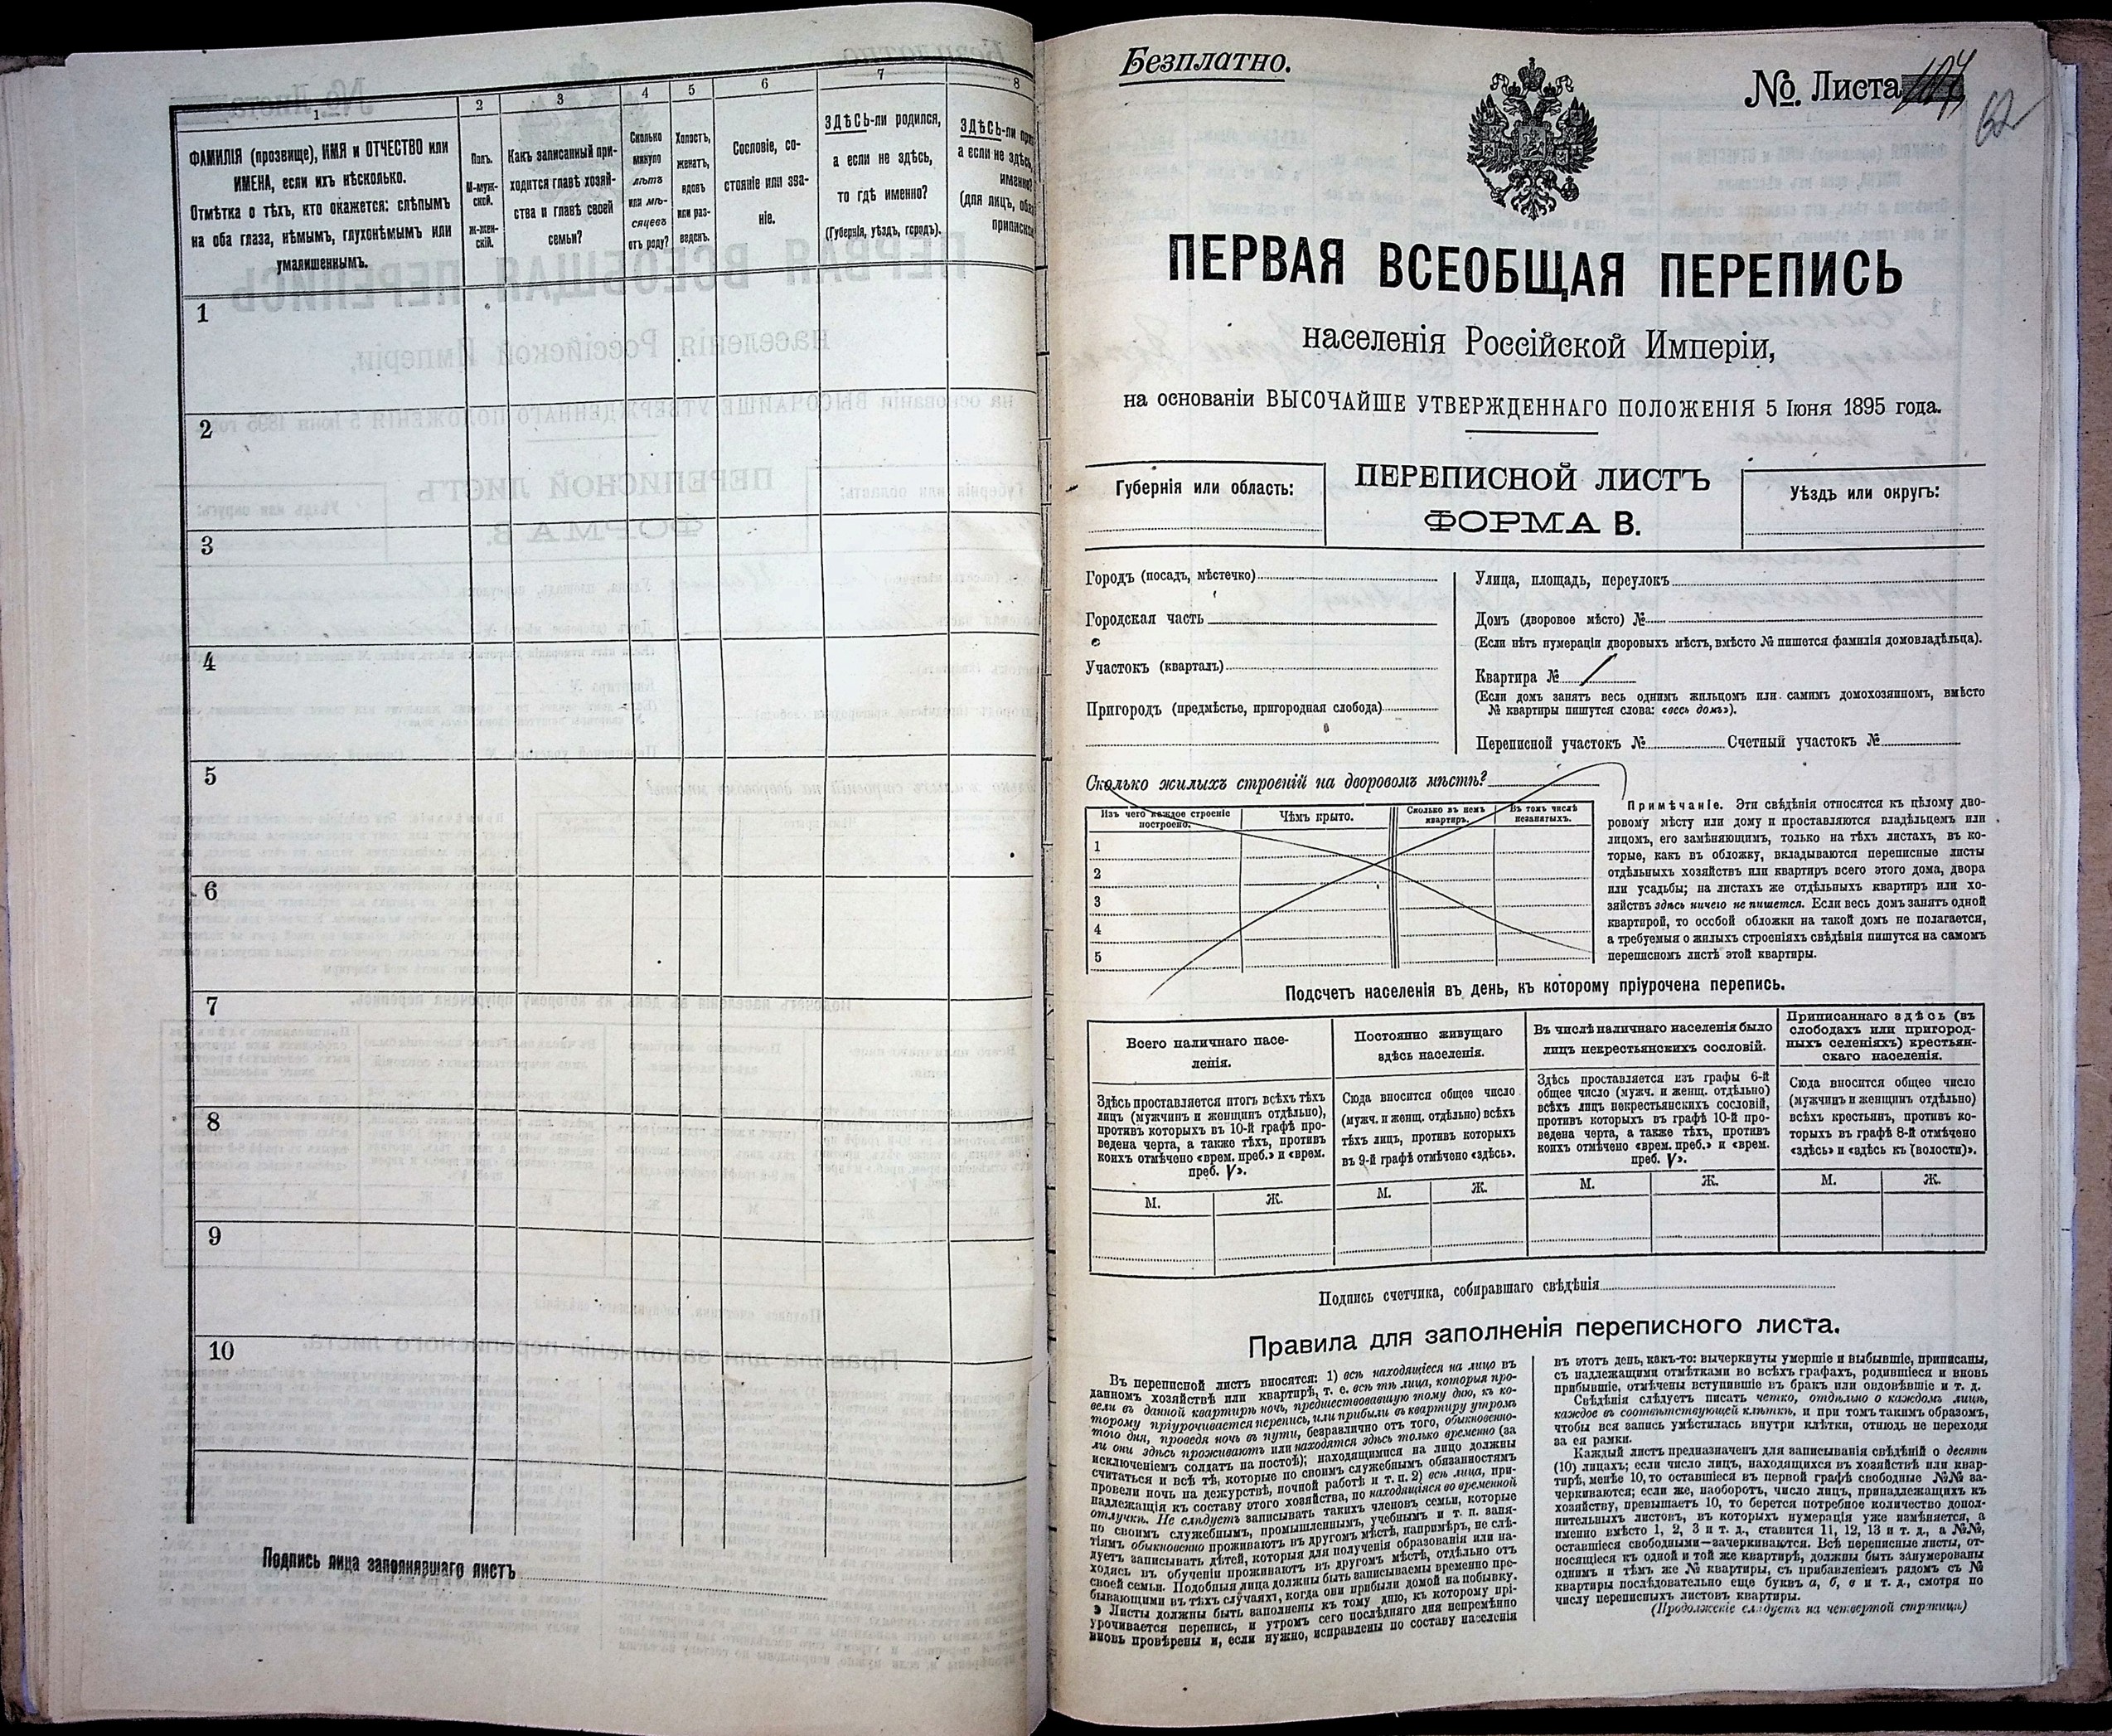 1
2
3
4
5
6
7
8
ФАМИЛІЯ (прозвище), ИМЯ и ОТЧЕСТВО или
ИМЕНА, если ихъ нѣсколько.
Отмѣтка о тѣхъ, кто окажется: слѣпымъ
на оба глаза, нѣмымъ, глухонѣмымъ или
умалишеннымъ.
Полъ.
М-муж-
ской.
Ж-жен-
скій.
Какъ записанный при-
ходится главѣ хозяй-
ства и главѣ своей
семьи?
Сколько
минуло
лѣтъ
или мѣ-
сяцевъ
отъ роду?
Холостъ,
женатъ,
вдовъ
или раз-
веденъ.
Сословіе, со-
стояніе или зва-
ніе.
ЗДѢСЬ-ли родился,
а если не здѣсь,
то гдѣ именно?
(Губернія, уѣздъ, городъ).
ЗДѢСЬ-ли
а если не здѣсь,
именно?
(для лицъ,
1
2
3
4
5
6
7
8
9
10
Подпись лица заполнявшаго листъ
Безплатно.
№. Листа 104
62
ПЕРВАЯ ВСЕОБЩАЯ ПЕРЕПИСЬ
населенія Россійской Имперіи,
на основаніи ВЫСОЧАЙШЕ УТВЕРЖДЕННАГО ПОЛОЖЕНІЯ 5 Іюня 1895 года.
Губернія или область:
ПЕРЕПИСНОЙ ЛИСТЪ
ФОРМА В.
Уѣздъ или округъ:
Городъ (посадъ, мѣстечко)
Городская часть
Участокъ (кварталъ)
Пригородъ (предмѣстье, пригородная слобода)
Улица, площадь, переулокъ
Домъ (дворовое мѣсто) №
(Если нѣтъ нумераціи дворовыхъ мѣстъ, вмѣсто № пишется фамилія домовладѣльца).
Квартира №
(Если домъ занятъ весь однимъ жильцомъ или самимъ домохозяиномъ, вмѣсто
№ квартиры пишутся слова: «весь домъ»).
Переписной участокъ № Счетный участокъ №
Сколько жилыхъ строеній на дворовомъ мѣстѣ?
Изъ чего каждое строеніе
построено.
Чѣмъ крыто.
Сколько въ немъ
квартиръ.
Въ томъ числѣ
незанятыхъ.
1
2
3
4
5
Примѣчаніе. Эти свѣдѣнія относятся къ цѣлому дво-
ровому мѣсту или дому и проставляются владѣльцемъ или
лицомъ, его замѣняющимъ, только на тѣхъ листахъ, въ ко-
торые, какъ въ обложку, вкладываются переписные листы
отдѣльныхъ хозяйствъ или квартиръ всего этого дома, двора
или усадьбы; на листахъ же отдѣльныхъ квартиръ или хо-
зяйствъ здѣсь ничего не пишется. Если весь домъ занятъ одной
квартирой, то особой обложки на такой домъ не полагается,
а требуемыя о жилыхъ строеніяхъ свѣдѣнія пишутся на самомъ
переписномъ листѣ этой квартиры.
Подсчетъ населенія въ день, къ которому пріурочена перепись.
Всего наличнаго насе-
ленія.
Постоянно живущаго
здѣсь населенія.
Въ числѣ наличнаго населенія было
лицъ некрестьянскихъ сословій.
Приписаннаго здѣсь (въ
слободахъ или пригород-
ныхъ селеніяхъ) крестьян-
скаго населенія.
Здѣсь проставляется итогъ всѣхъ тѣхъ
лицъ (мужчинъ и женщинъ отдѣльно),
противъ которыхъ въ 10-й графѣ про-
ведена черта, а также тѣхъ, противъ
коихъ отмѣчено «врем. преб.» и «врем.
преб. V».
Сюда вносится общее число
(мужч. и женщ. отдѣльно) всѣхъ
тѣхъ лицъ, противъ которыхъ
въ 9-й графѣ отмѣчено «здѣсь».
Здѣсь проставляется изъ графы 6-й
общее число (мужч. и женщ. отдѣльно)
всѣхъ лицъ некрестьянскихъ сословій,
противъ которыхъ въ графѣ 10-й про-
ведена черта, а также тѣхъ, противъ
коихъ отмѣчено «врем. преб.» и «врем.
преб. V».
Сюда вносится общее число
(мужчинъ и женщинъ отдѣльно)
всѣхъ крестьянъ, противъ ко-
торыхъ въ графѣ 8-й отмѣчено
«здѣсь» и «здѣсь къ (волости)».
М. Ж. М. Ж. М. Ж. М. Ж.
Подпись счетчика, собиравшаго свѣдѣнія
Правила для заполненія переписного листа.
Въ переписной листъ вносятся: 1) всѣ находящіеся на лицо въ
данномъ хозяйствѣ или квартирѣ, т. е. всѣ тѣ лица, которыя про-
вели въ данной квартирѣ ночь, предшествовавшую тому дню, къ ко-
торому пріурочивается перепись, или прибыли въ квартиру утромъ
того дня, проведя ночь въ пути, безразлично отъ того, обыкновенно-
ли они здѣсь проживаютъ или находятся здѣсь только временно (за
исключеніемъ солдатъ на постоѣ); находящимися на лицо должны
считаться и всѣ тѣ, которые по своимъ служебнымъ обязанностямъ
провели ночь на дежурствѣ, ночной работѣ и т. п. 2) всѣ лица, при-
надлежащія къ составу этого хозяйства, но находящіяся во временной
отлучкѣ. Не слѣдуетъ записывать такихъ членовъ семьи, которые
по своимъ служебнымъ, промышленнымъ, учебнымъ и т. п. заня-
тіямъ обыкновенно проживаютъ въ другомъ мѣстѣ, напримѣръ, не слѣ-
дуетъ записывать дѣтей, которыя для полученія образованія или на-
ходясь въ обученіи проживаютъ въ другомъ мѣстѣ, отдѣльно отъ
своей семьи. Подобныя лица должны быть записываемы временно пре-
бывающими въ тѣхъ случаяхъ, когда они прибыли домой на побывку.
Листы должны быть заполнены къ тому дню, къ которому прі-
урочивается перепись, и утромъ сего послѣдняго дня непремѣнно
вновь провѣрены и, если нужно, исправлены по составу населенія
въ этотъ день, какъ-то: вычеркнуты умершіе и выбывшіе, приписаны,
съ надлежащими отмѣтками во всѣхъ графахъ, родившіеся и вновь
прибывшіе, отмѣчены вступившіе въ бракъ или овдовѣвшіе и т. д.
Свѣдѣнія слѣдуетъ писать четко, отдѣльно о каждомъ лицѣ,
каждое въ соотвѣтствующей клѣткѣ, и при томъ такимъ образомъ,
чтобы вся запись умѣстилась внутри клѣтки, отнюдь не переходя
за ея рамки.
Каждый листъ предназначенъ для записыванія свѣдѣній о десяти
(10) лицахъ; если число лицъ, находящихся въ хозяйствѣ или квар-
тирѣ, менѣе 10, то оставшіеся въ первой графѣ свободные №№ за-
черкиваются; если же, наоборотъ, число лицъ, принадлежащихъ къ
хозяйству, превышаетъ 10, то берется потребное количество допол-
нительныхъ листовъ, въ которыхъ нумерація уже измѣняется, а
именно вмѣсто 1, 2, 3 и т. д., ставится 11, 12, 13 и т. д., а №№,
оставшіеся свободными—зачеркиваются. Всѣ переписные листы, от-
носящіеся къ одной и той же квартирѣ, должны быть занумерованы
однимъ и тѣмъ же № квартиры, съ прибавленіемъ рядомъ съ №
квартиры послѣдовательно еще буквъ а, б, в и т. д., смотря по
числу переписныхъ листовъ квартиры.
(Продолженіе слѣдуетъ на четвертой страницѣ)